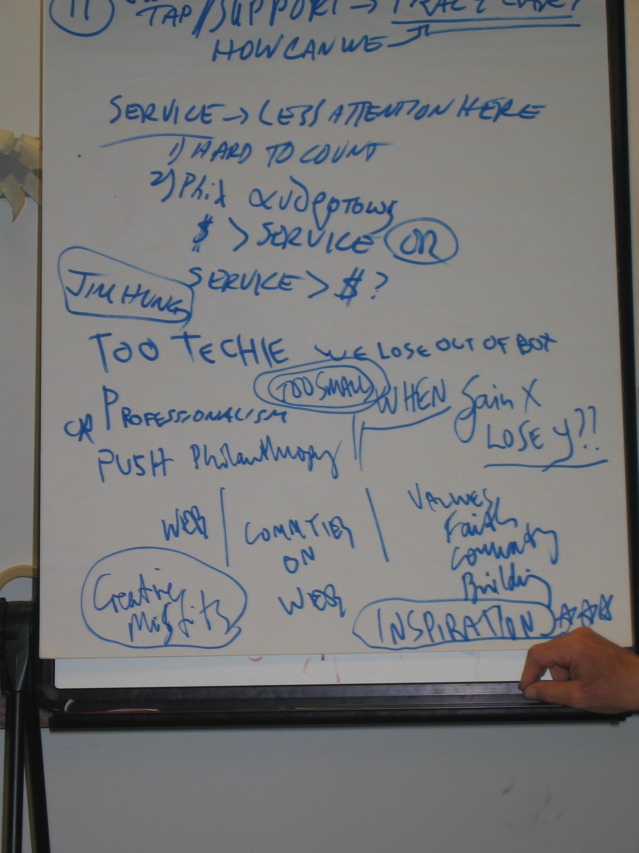 11
TAP/SUPPORT →
HOW CAN WE
SERVICE → LESS ATTENTION HERE
1) HARD TO COUNT
2) Phil
$ > SERVICE OR
SERVICE > $?
JIM HUNG
TOO TECHIE WE LOSE OUT OF BOX
TOO SMALL
OR PROFESSIONALISM WHEN Gain X
LOSE y??
PUSH Philanthropy
WEB
COMMTIES
ON
WEB
VALUES
Faith
Community
Building
Creative
Misfits
INSPIRATION